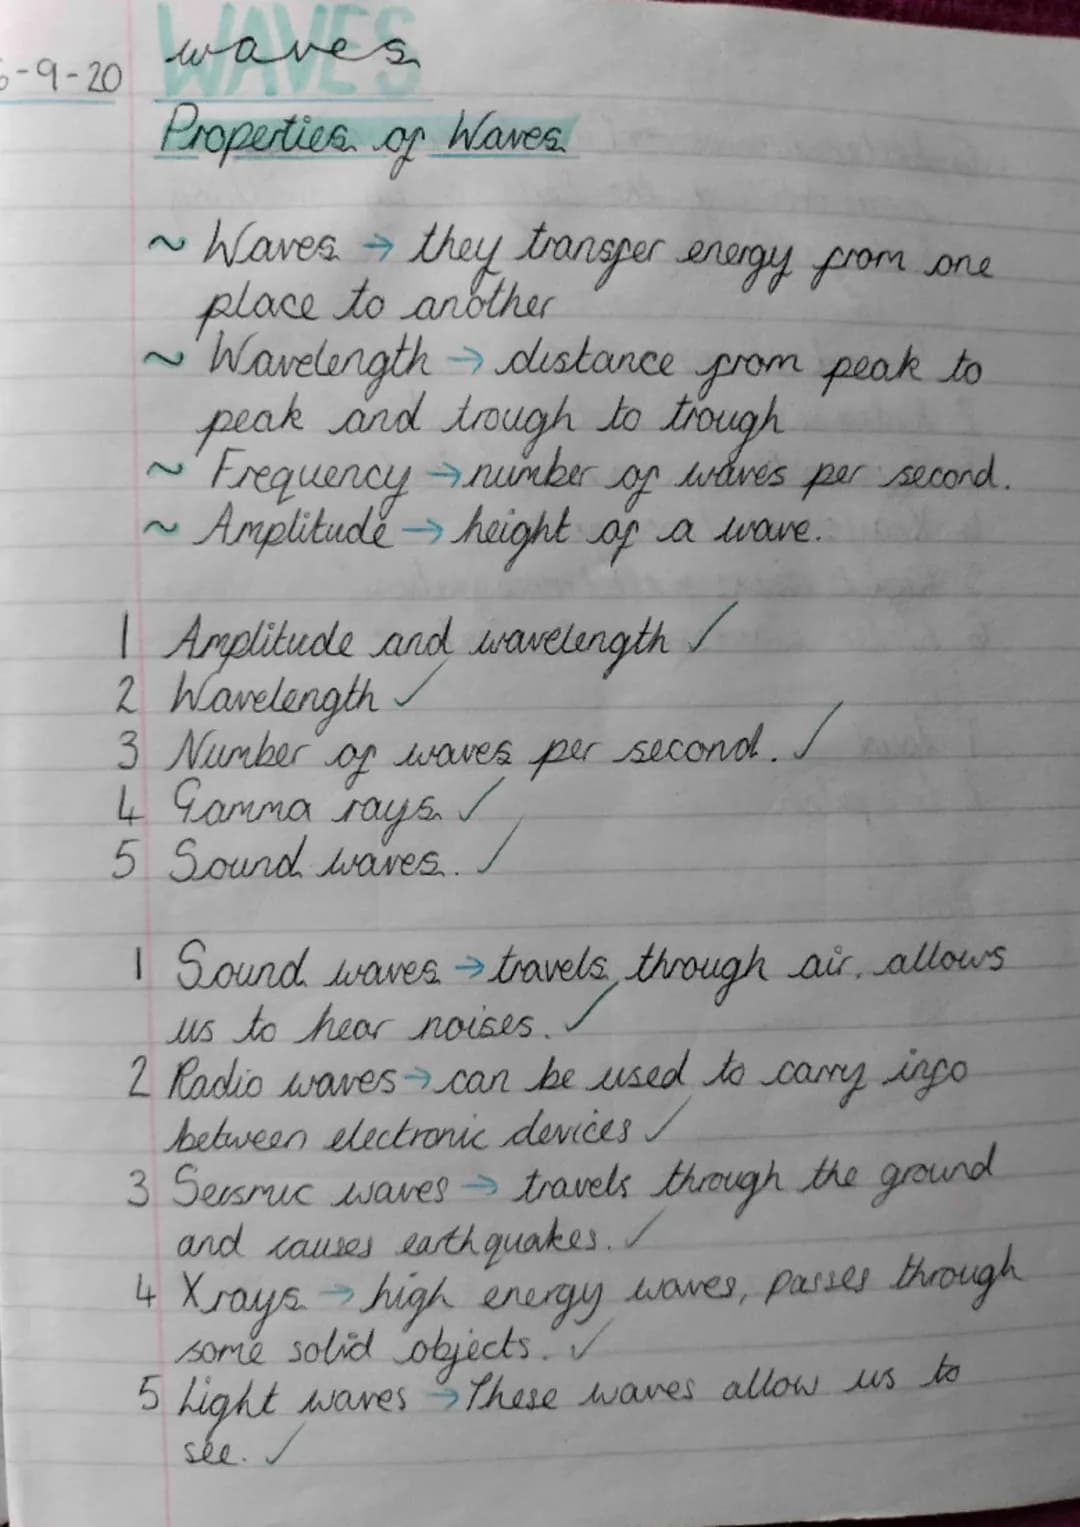 WAVES
waves
-9-20
Properties of Waves
~ Waves → they transfer energy from one
place to another
~ Wavelength → distance from peak to
peak and trough to trough
~ Frequency → number of waves per second.
~ Amplitude → height of a wave.
1 Amplitude and wavelength ✓
2 Wavelength ✓
3 Number of waves per second. ✓
4 Gamma rays. ✓
5 Sound waves. ✓
1 Sound waves → travels through air, allows
us to hear noises. ✓
2 Radio waves → can be used to carry info
between electronic devices ✓
3 Seismic waves → travels through the ground
and causes earthquakes. ✓
4 X rays → high energy waves, passes through
some solid objects. ✓
5 Light waves → These waves allow us to
see. ✓